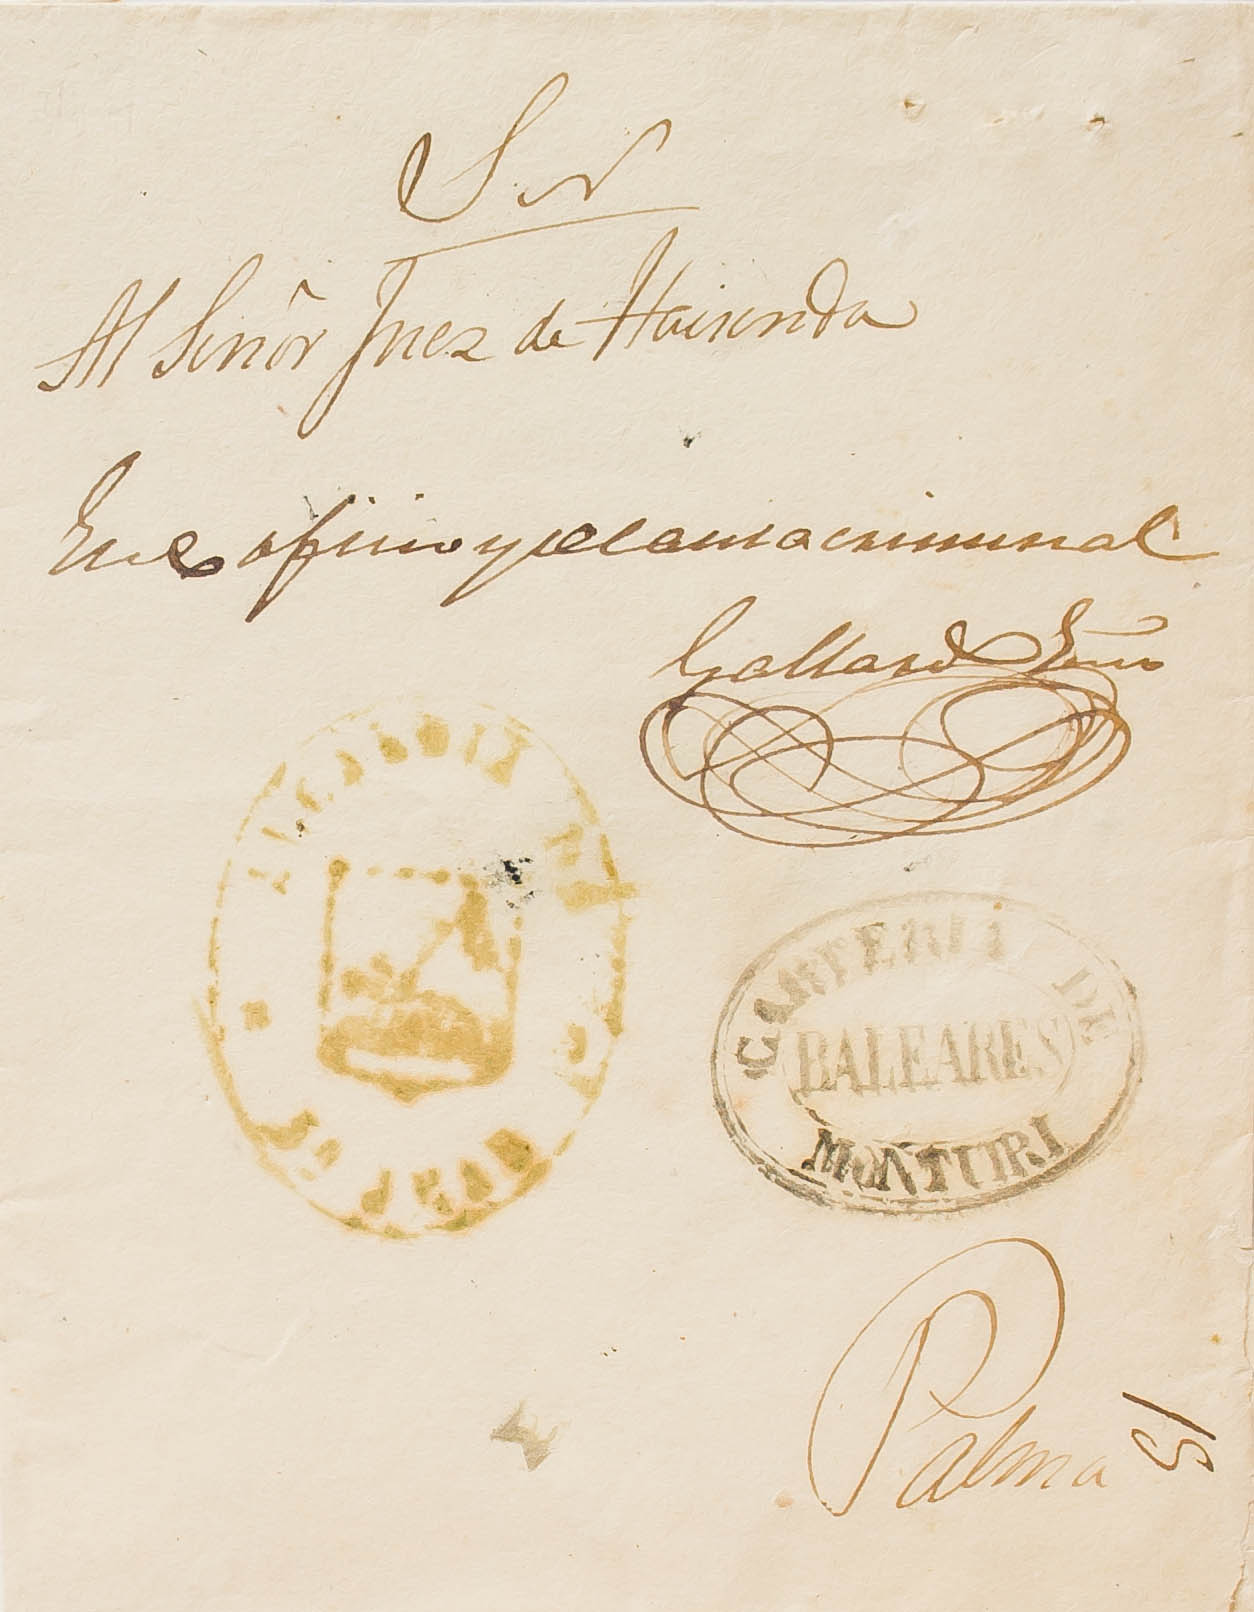 S. N.
Al Señor Juez de Haienda
En el ofisio y de causa criminal
Gallard Esno
ALCALDIA
CARTERIA DE
BALEARES
MONTUIRI
Palma
51